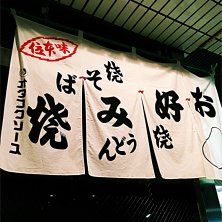 お好み焼
焼そば
焼うどん
味本位
オタフクソース